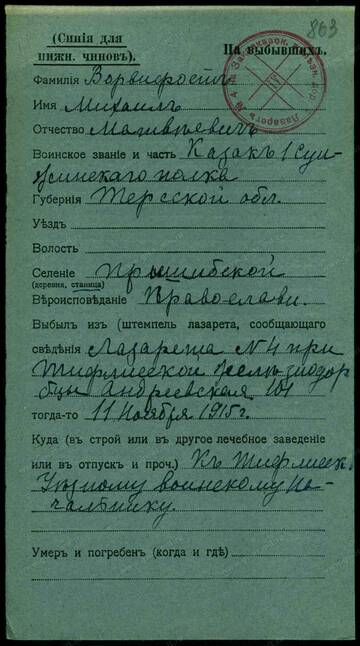 863
(Синія для
нижн. чиновъ).
На выбывшихъ.
Лазаретъ № 4 Закавказск. Желѣзн. дор.
Фамилія
Имя Михаилъ
Отчество Матвѣевичъ
Воинское званіе и часть Казакъ 1 Сун-
женскаго полка
Губернія Терской обл.
Уѣздъ
Волость
Селеніе Пришибской
(деревня, станица)
Вѣроисповѣданіе Православн.
Выбылъ изъ (штемпель лазарета, сообщающаго
свѣдѣнія) Лазарета N 4 при
Тифлисской желѣзнодор
Андреевская 101
тогда-то 11 Ноября 1915 г.
Куда (въ строй или въ другое лечебное заведеніе
или въ отпускъ и проч.) Къ Тифлисск.
Уѣздному воинскому На-
чальнику.
Умеръ и погребенъ (когда и гдѣ)